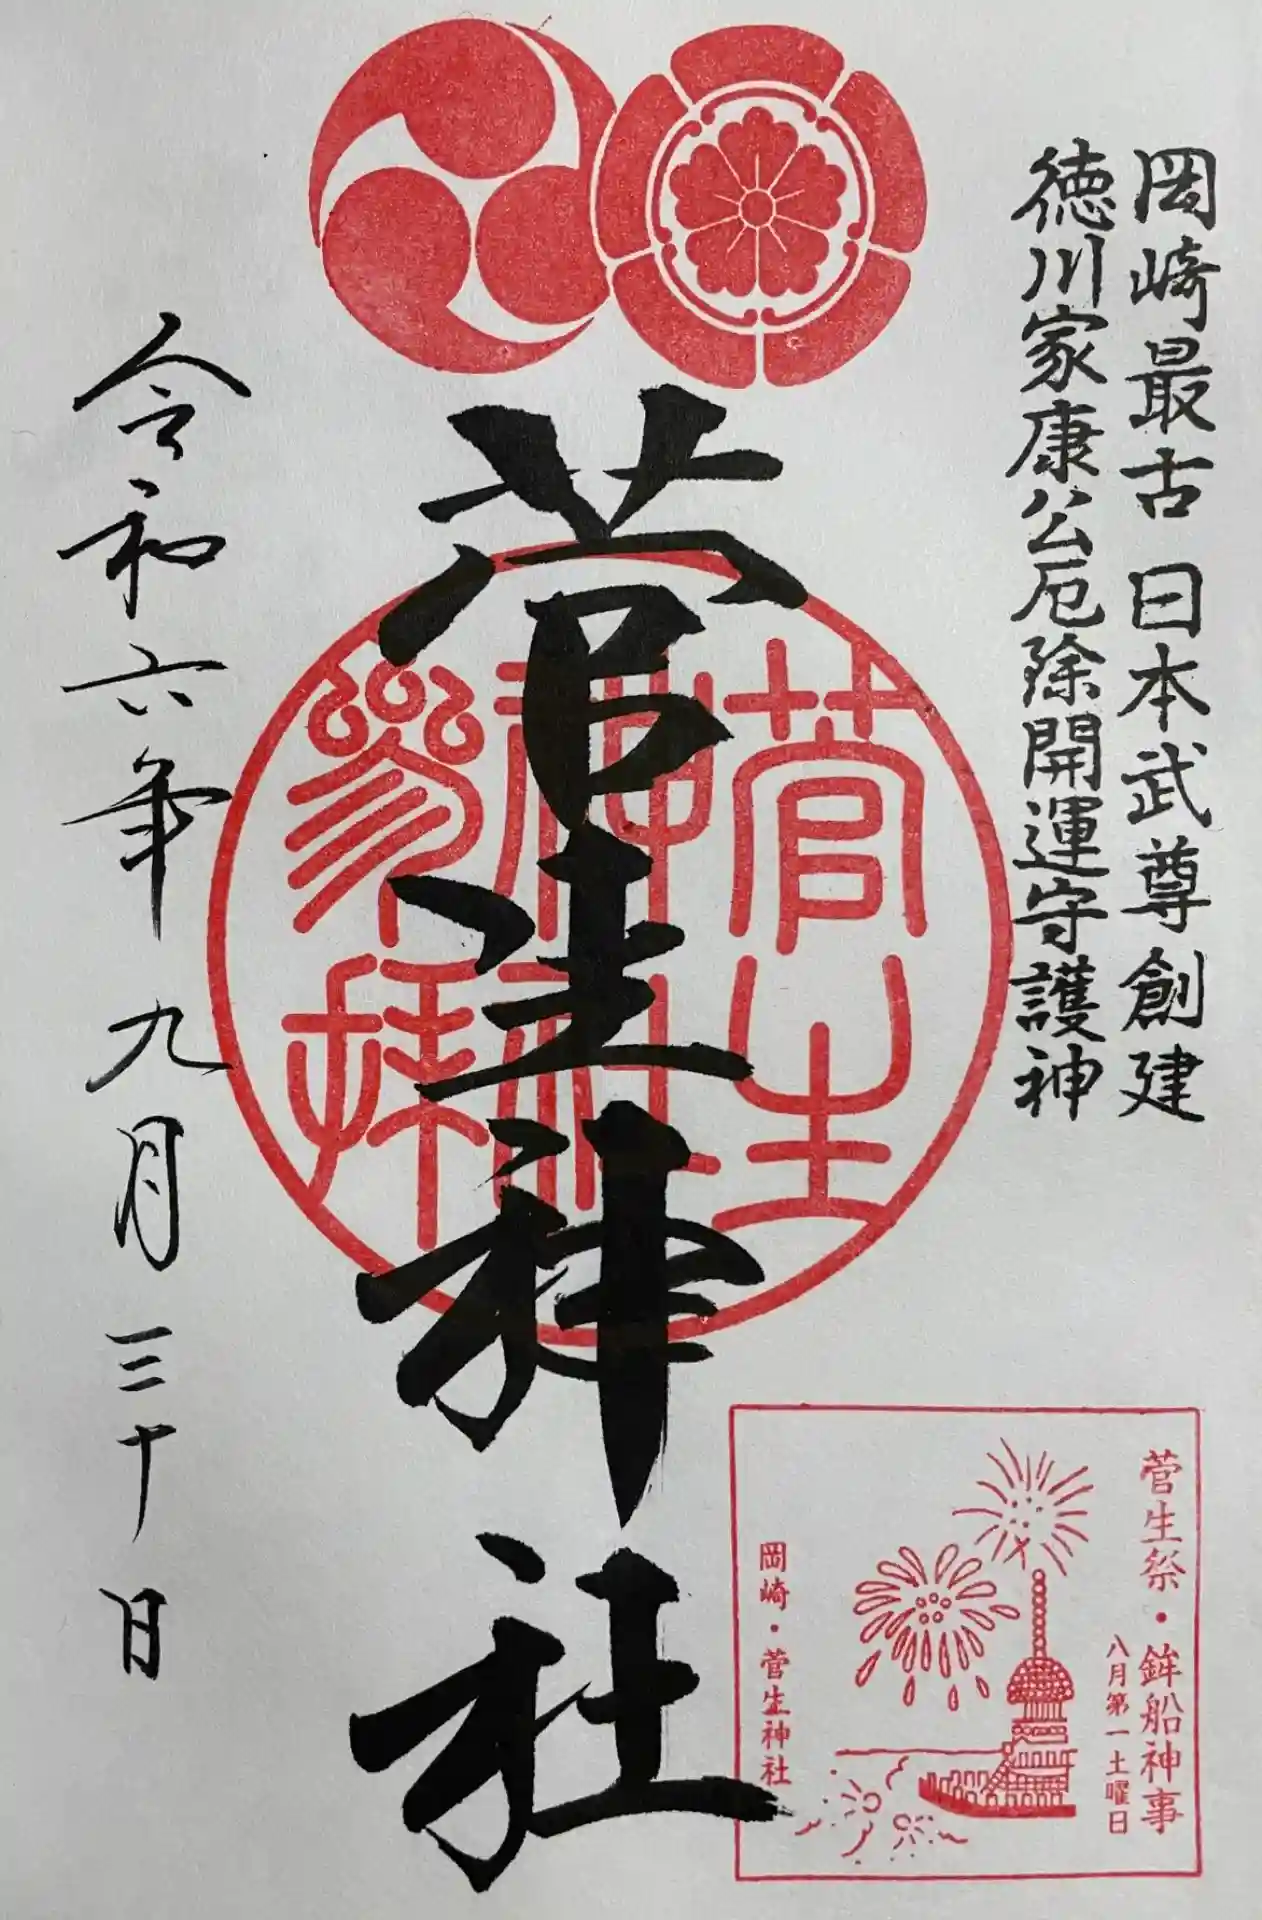 岡崎最古 日本武尊創建
徳川家康公厄除開運守護神
菅生神社
菅生
神社
参拝
令和六年 九月三十日
菅生祭・鉾船神事
八月第一土曜日
岡崎・菅生神社